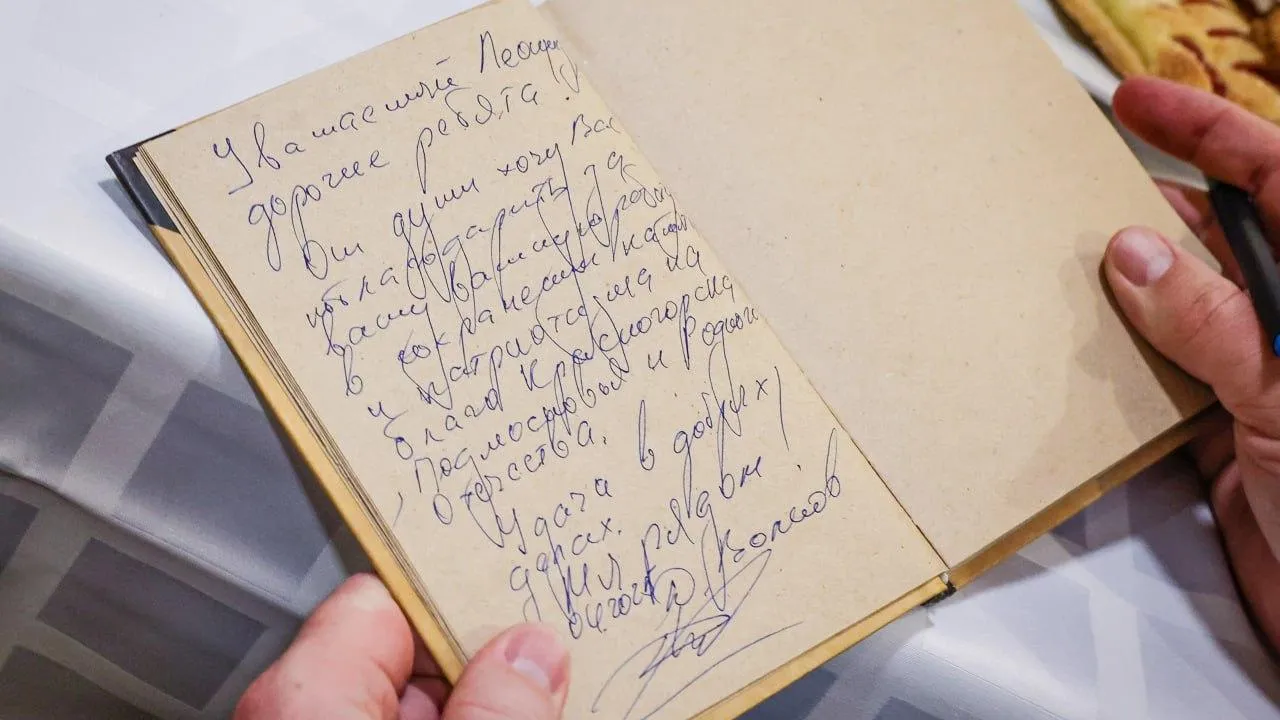 Уважаемый Леонид
дорогие ребята!
От души хочу Вас
поблагодарить за
вашу важную работу
в сохранении
и патриотизма на
благо Красногорска
Подмосковья и Родного
Отечества.
Удача в добрых
делах.
Мы рядом!
Волков